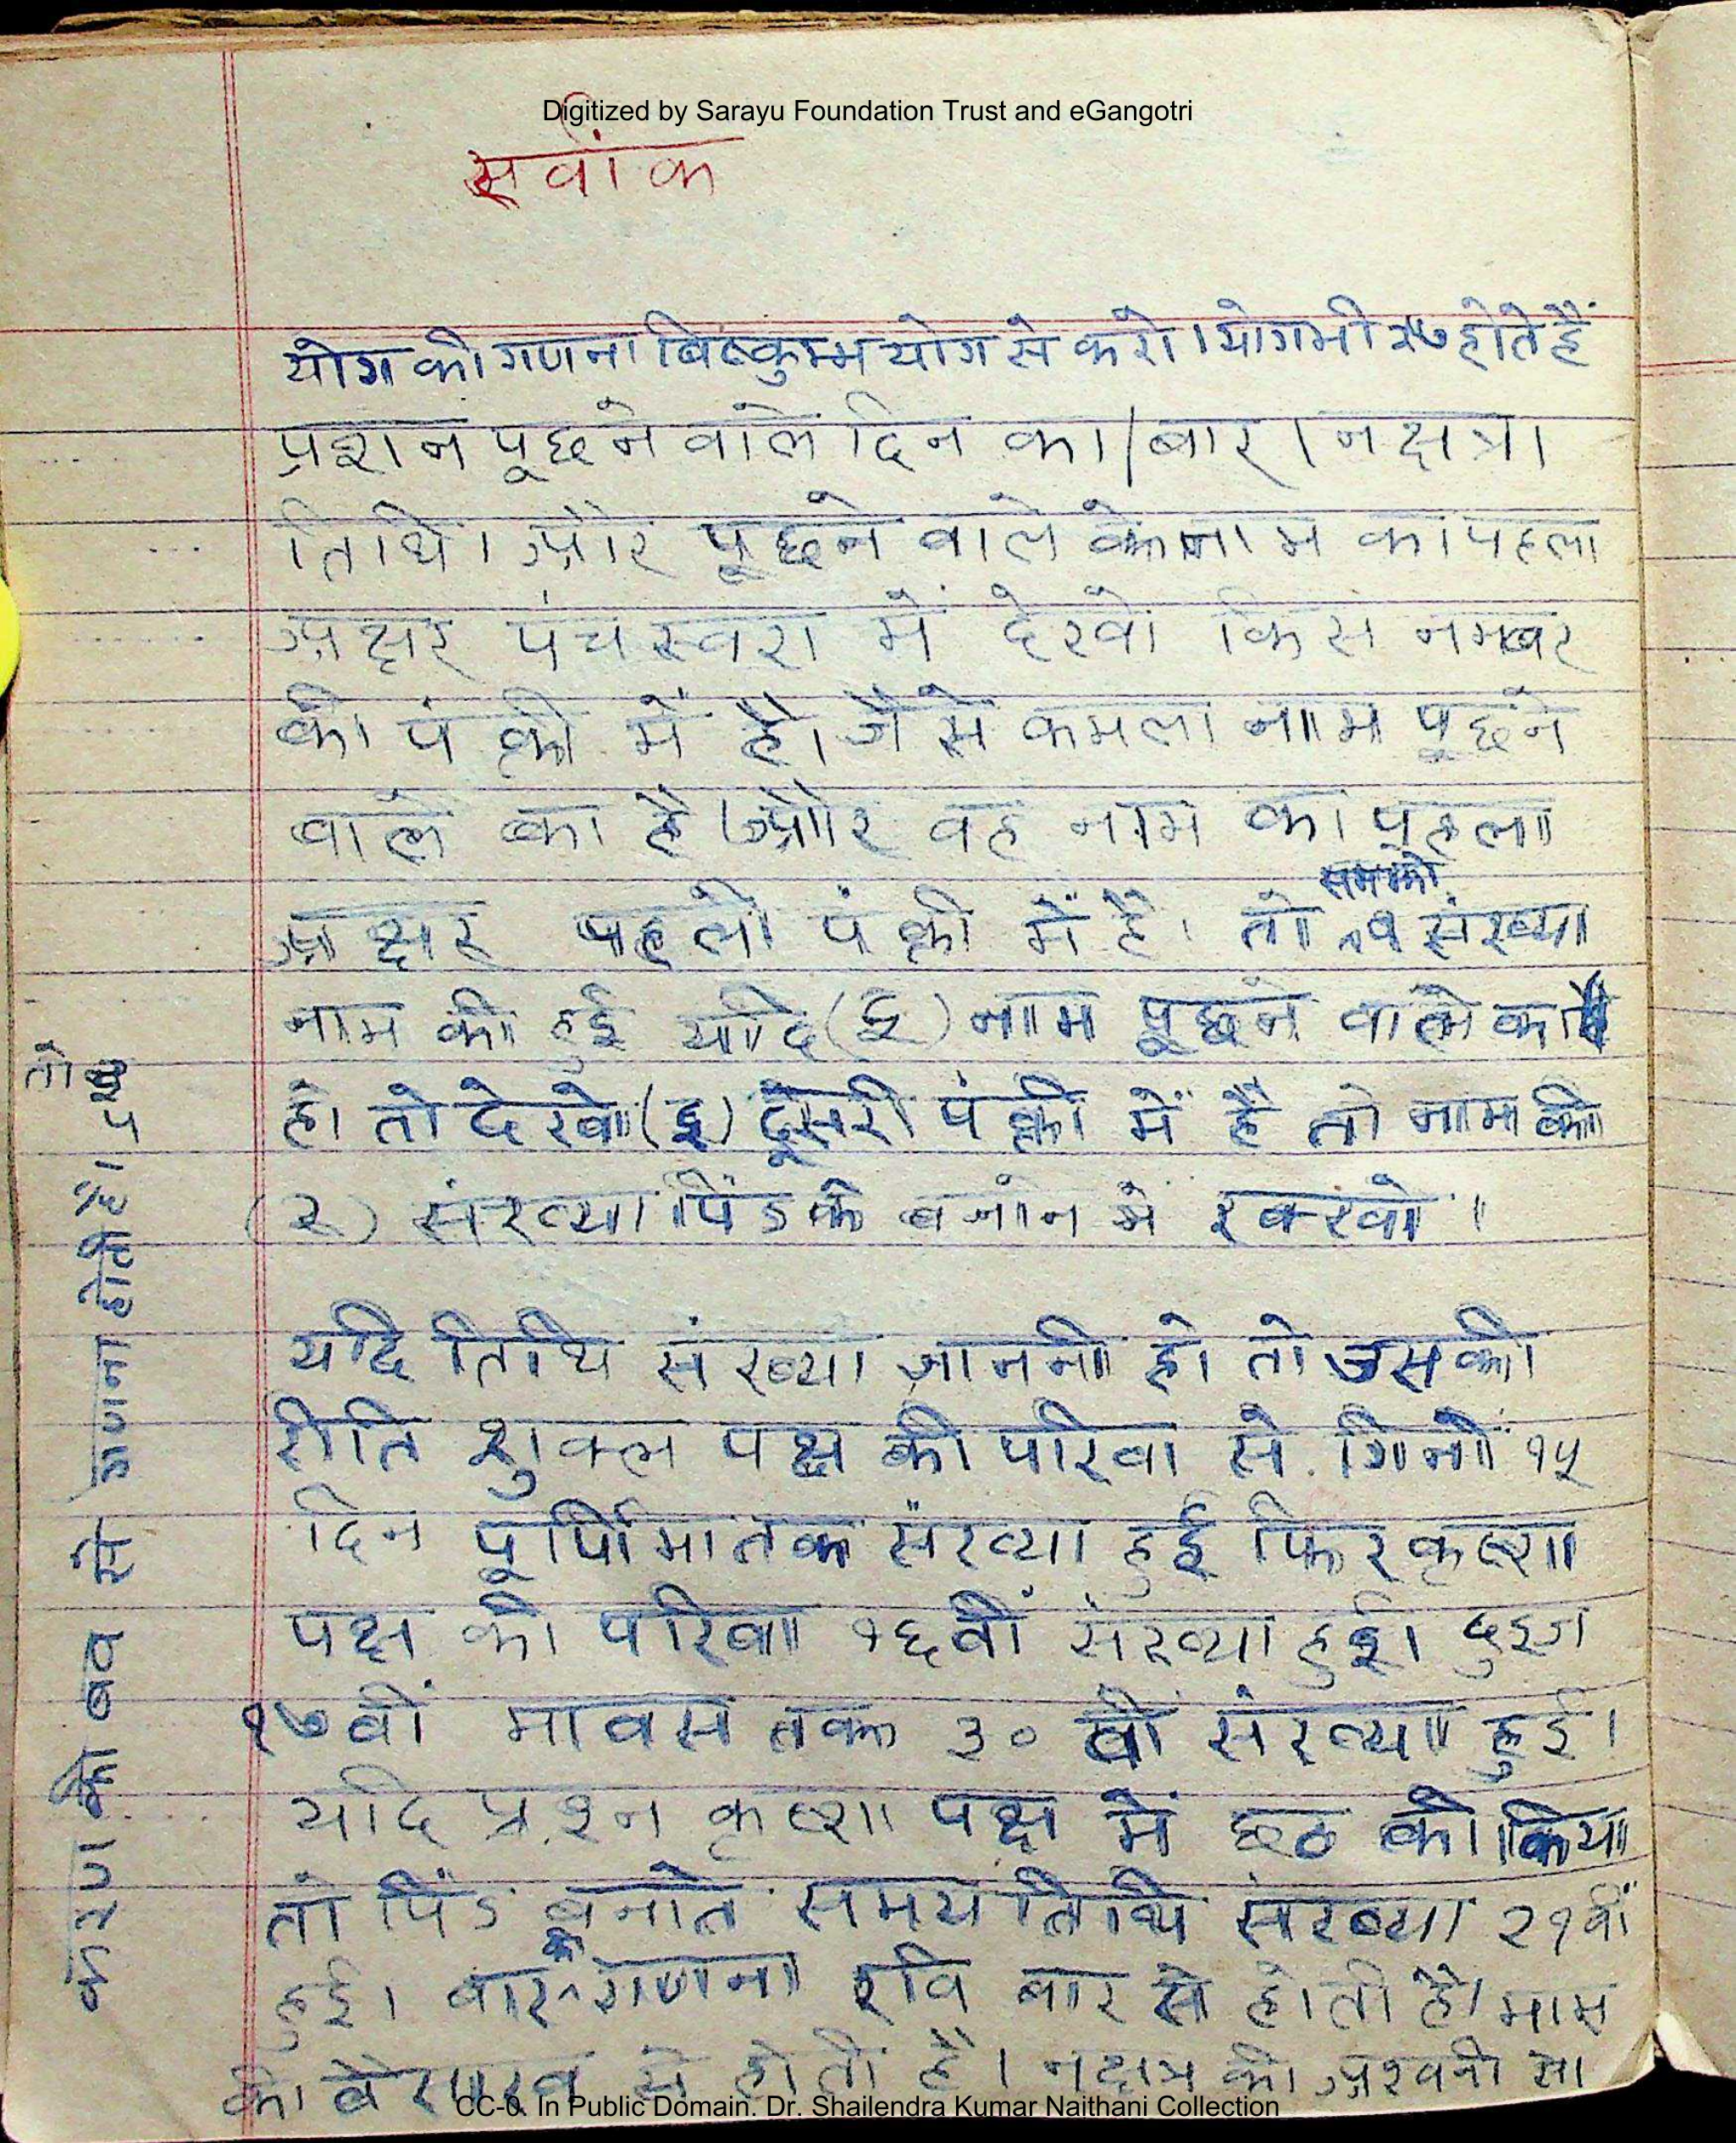 Digitized by Sarayu Foundation Trust and eGangotri
सर्वांक
योग की गणना बिष्कुम्भ योग से करो। योग भी २७ होते हैं
प्रशन पूछने वाले दिन का। बार। नक्षत्र।
तिथि। और पूछने वाले के नाम का पहला
अक्षर पंचस्वरा में देखो किस नम्बर
की पंक्ती में है। जैसे कमला नाम पूछने
वाले का है। और वह नाम का पहला
समझो
अक्षर पहली पंक्ती में है। तो १ संख्या
नाम की हुई यदि (इ) नाम पूछने वाले का
हो तो देखो (इ) दूसरी पंक्ती में है तो नाम की
(२) संख्या पिंड के बनाने में रक्खो।
यदि तिथि संख्या जाननी हो तो उसकी
रीति शुक्ल पक्ष की परिवा से गिनो १५
दिन पूर्णिमा तक संख्या हुई फिर कृष्ण
पक्ष की परिवा १६वीं संख्या हुई। दुइज
१७वीं मावस तक ३० वीं संख्या हुई।
यदि प्रश्न कृष्ण पक्ष में छठ को किया
तो पिंड बनाते समय तिथि संख्या २१वीं
हुई। बार की गणना रवि बार से होती है। मास
की वैसाख से होती है। नक्षत्र की अश्वनी से
तो
गणना होती है।
CC-0. In Public Domain. Dr. Shailendra Kumar Naithani Collection